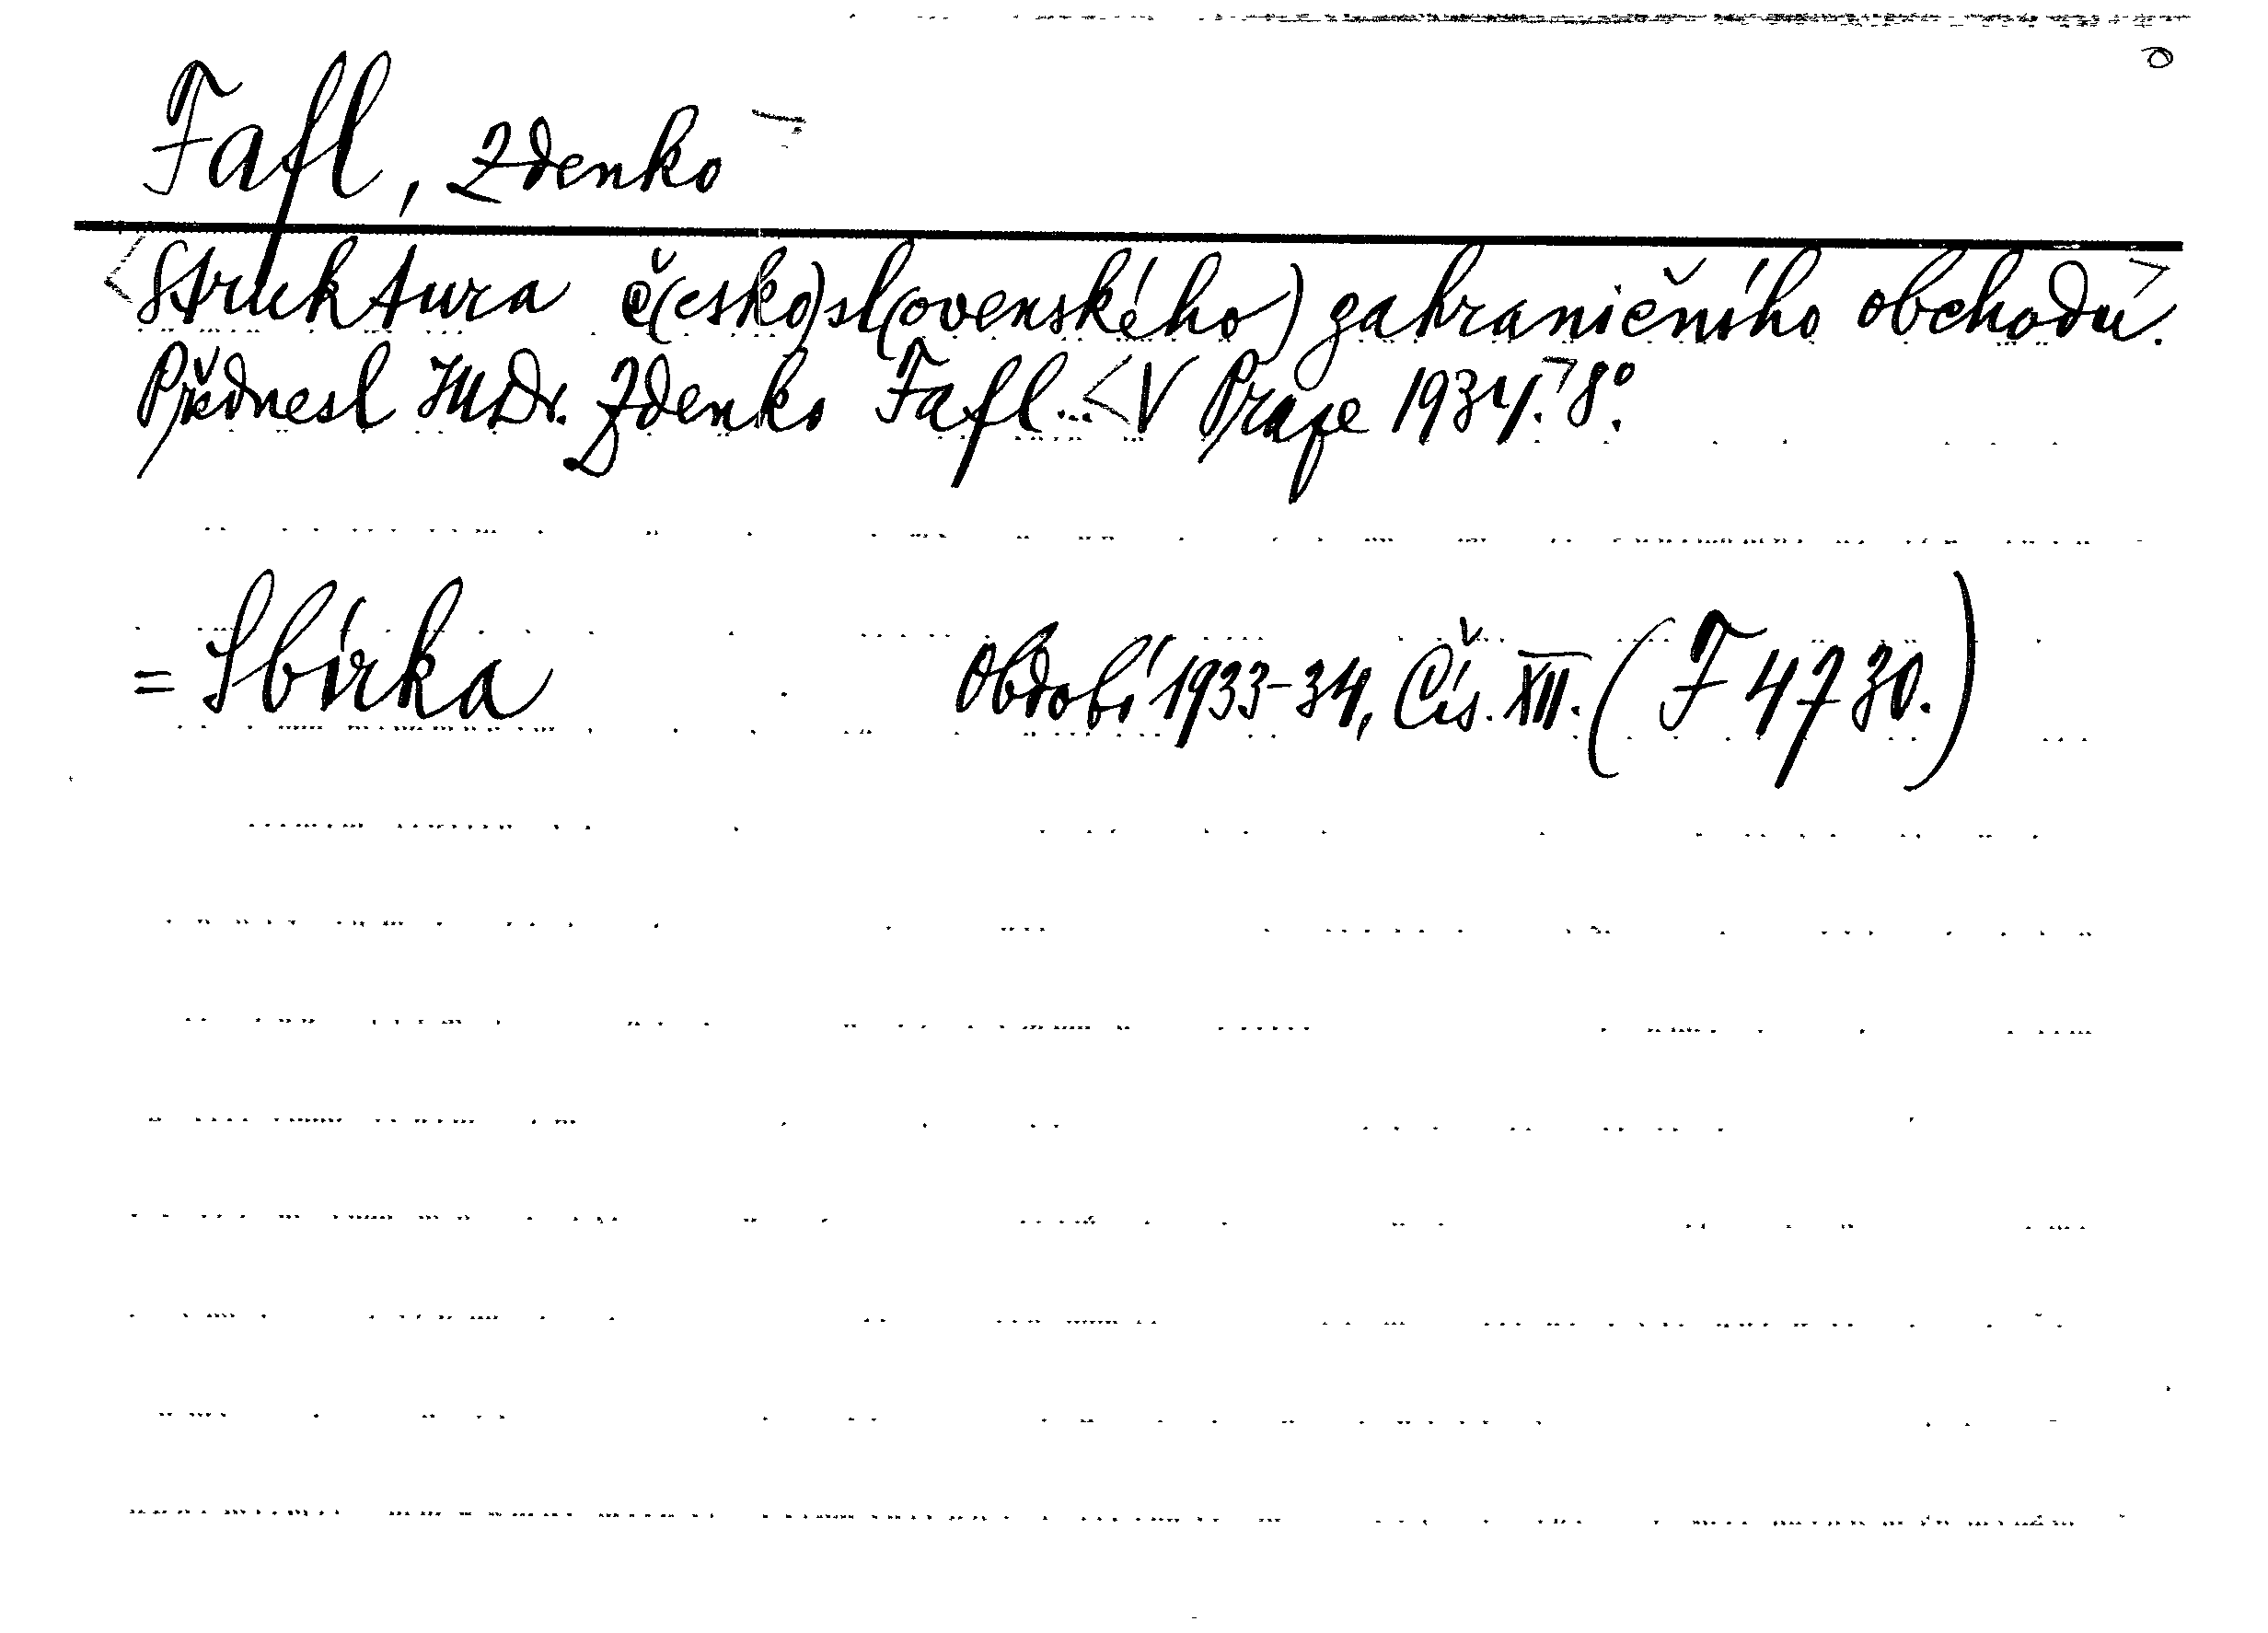 Fafl, Zdenko
<Struktura č(esko)sl(ovenského) zahraničního obchodu.>
Přednesl JUDr. Zdenko Fafl...<V Praze 1934.> 8°.
= Sbírka Období 1933-34, Čís. XII. (F 4730.)